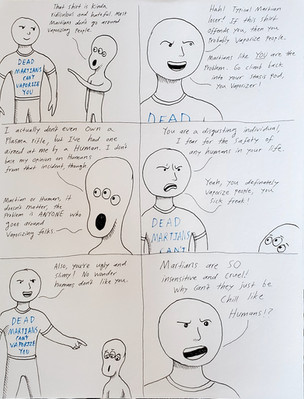 That shirt is kinda
ridiculous and hateful. Most
Martians don't go around
Vaporizing People.
DEAD
MARTIANS
CAN'T
VAPORIZE
YOU
Hah! Typical Martian
loser! If this shirt
offends you, then you
Probably vaporize People.
Martians like YOU are the
Problem. Go climb back
into your stasis Pod,
you Vaporizer!
DEAD
I actually don't even own a
Plasma rifle, but I've had one
aimed at me by a Human. I don't
base my opinion on Humans
from that incident, though.
Martian or Human, it
doesn't matter, the
Problem is ANYONE who
goes around
Vaporizing folks.
You are a disgusting individual.
I fear for the safety of
any humans in your life.
Yeah, you definitely
vaporize people, you
sick freak!
DEAD
MARTIANS
CAN'T
Also, you're ugly and
slimy! No wonder
humans don't like you.
DEAD
MARTIANS
CAN'T
VAPORIZE
YOU
Martians are SO
insensitive and cruel!
Why can't they just be
Chill like
Humans!?